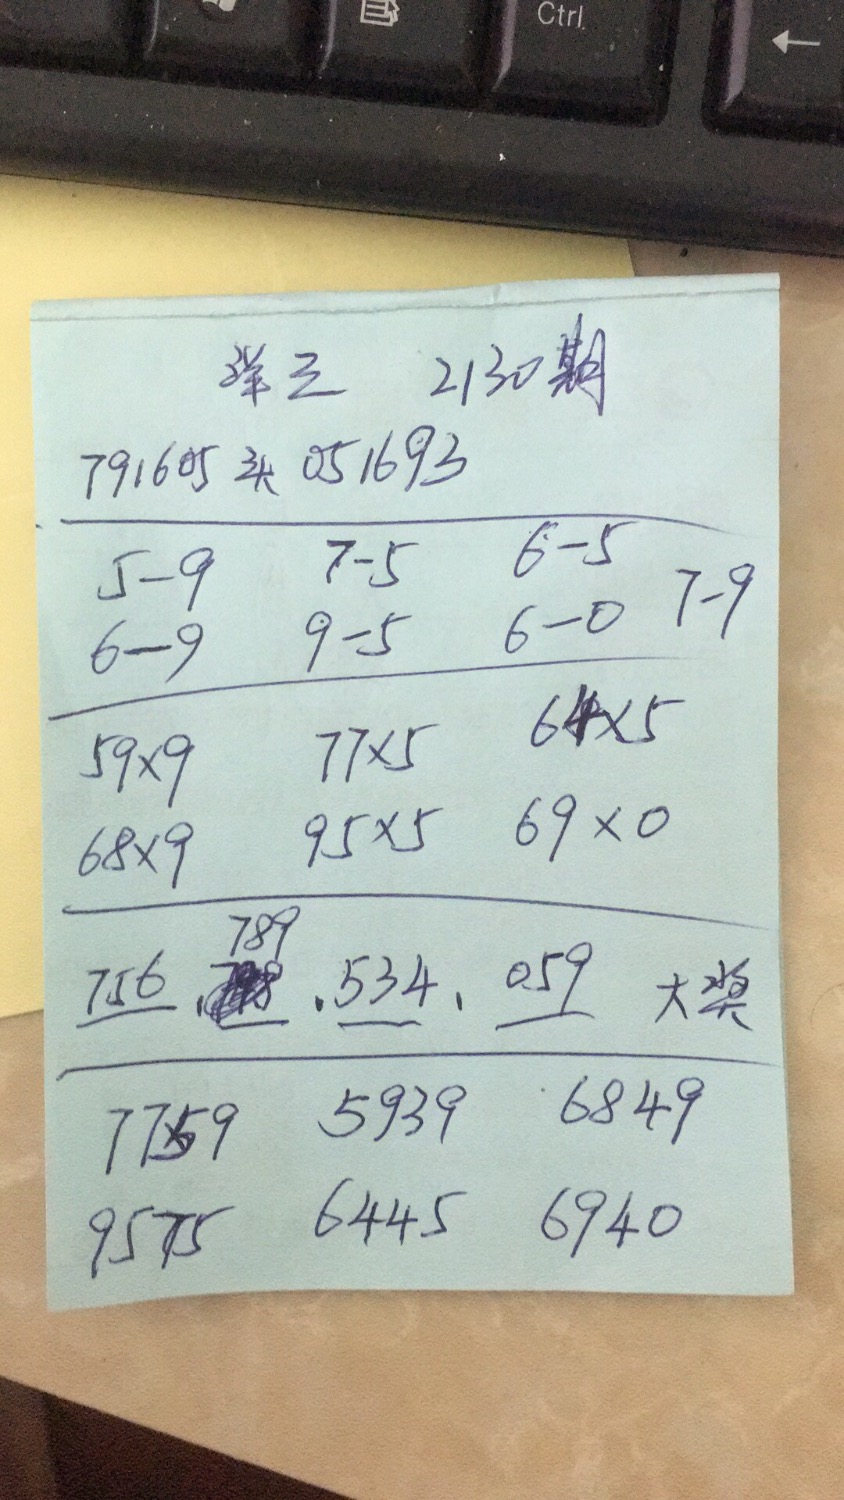 Ctrl
2130期
791605头 051693
5-9 7-5 6-5 7-9
6-9 9-5 6-0
59×9 77×5 64×5
68×9 95×5 69×0
789
756 . . 534 . 059 大奖
7759 5939 6849
9575 6445 6940